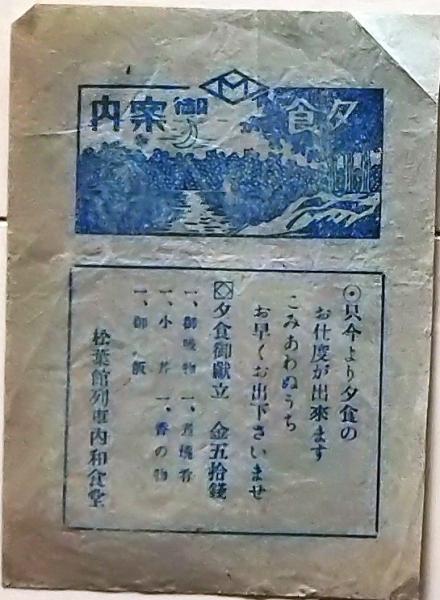 夕食御案内
M
◉只今より夕食の
お仕度が出來ます
こみあわぬうち
お早くお出下さいませ
夕食御獻立 金五拾錢
一、御吸物 一、
一、小丼 一、香の物
一、御飯
松葉館列車内和食堂